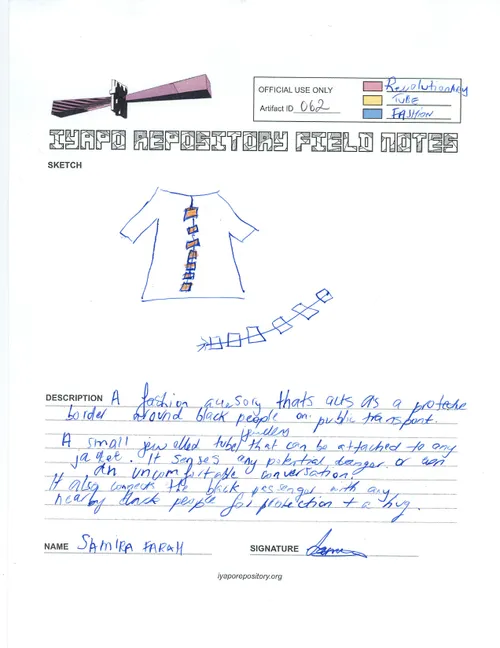 OFFICIAL USE ONLY
Artifact ID 062
Revolutionary
TUBE
FASHION
IYAPO REPOSITORY FIELD NOTES
SKETCH
DESCRIPTION A fashion accessory thats acts as a protective
border around black people on public transport.
A small jewelled tube that can be attached to any
jacket. It senses any potential danger or even
an uncomfortable conversation.
It also connects the black passenger with any
nearby black people for protection + a hug.
NAME SAMIRA FARAH
SIGNATURE
iyaporepository.org